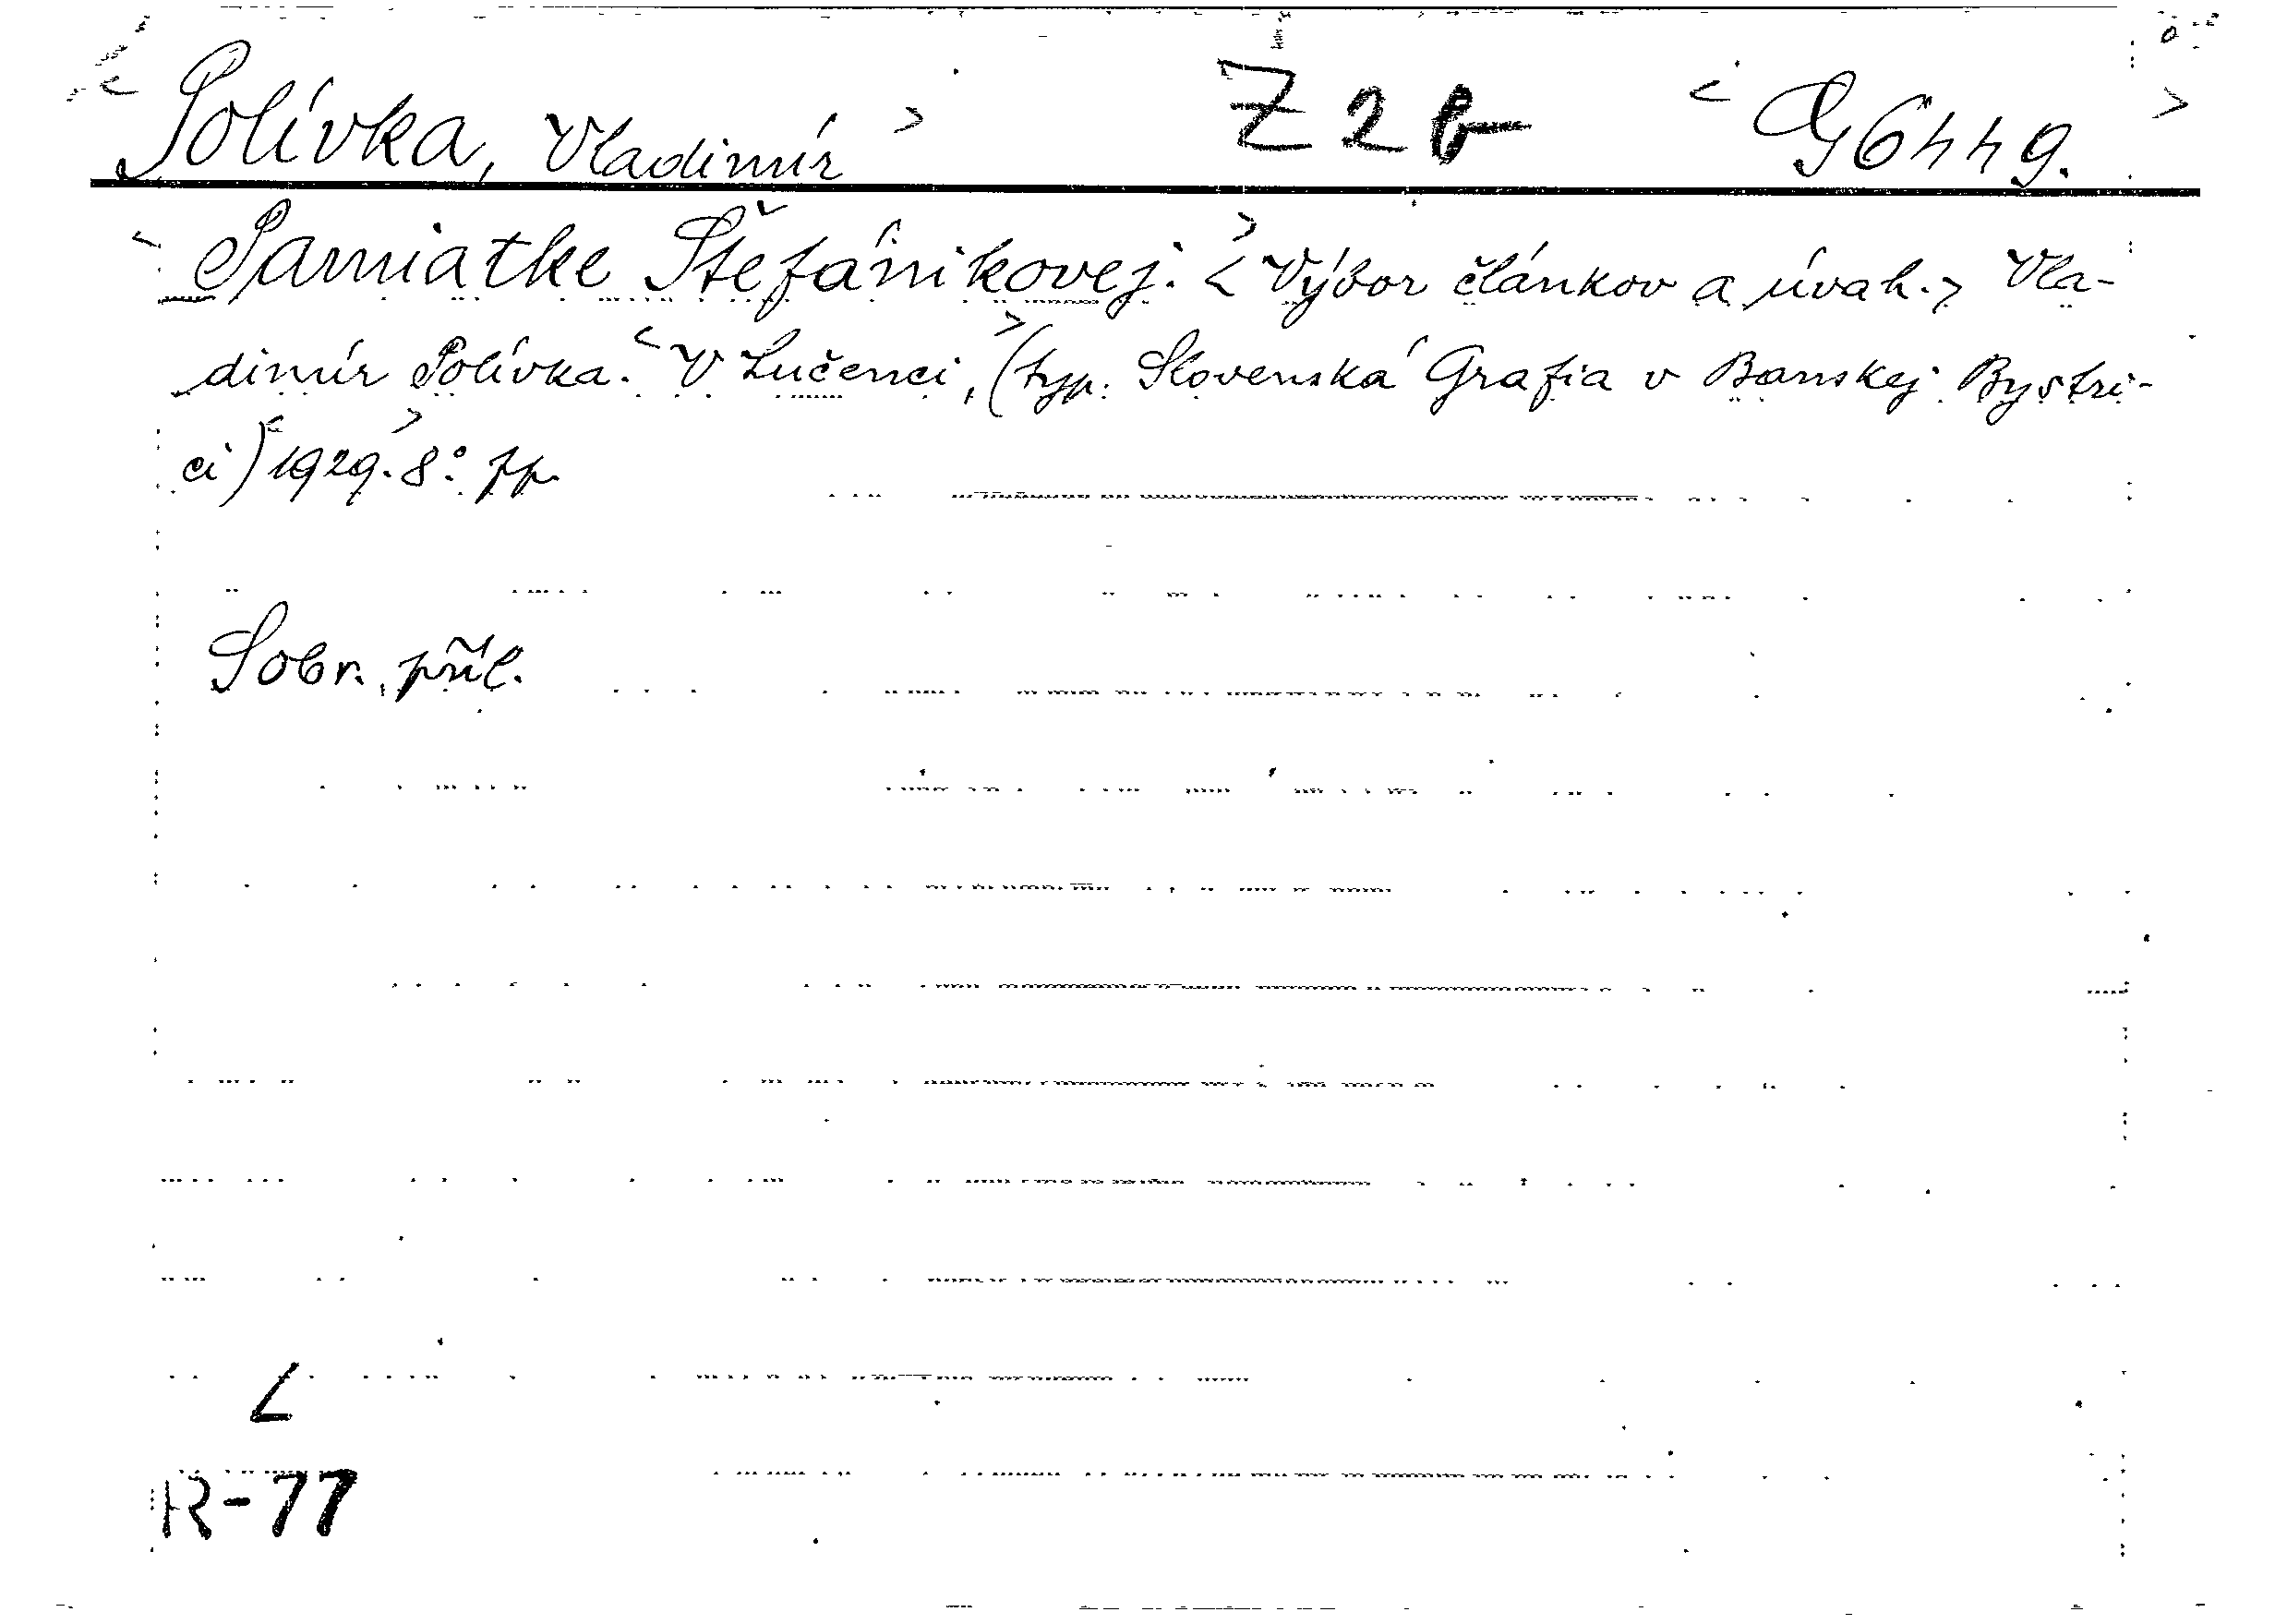 < Polívka, Vladimír > Z 2 b < G 6449. >
< Pamiatke Štefánikovej. > < Výbor článkov a úvah. > Vla-
dimír Polívka. < V Lučenci, > (typ. Slovenská Grafia v Banskej Bystri-
ci) < 1929. > 8°.
S obr. příl.
L
R-77